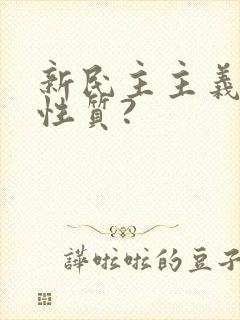 新民主主義
性質?
譁啦啦的豆子